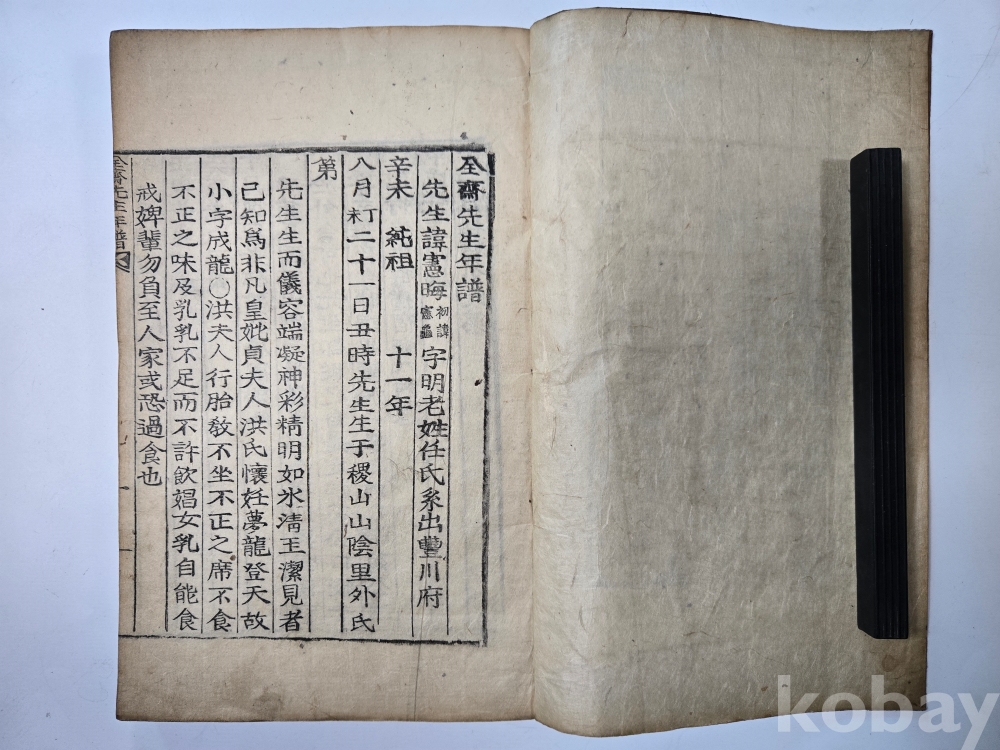 全齋先生年譜
先生諱憲晦初諱憲龜字明老姓任氏系出豐川府
辛未 純祖 十一年
八月丁未二十一日丑時先生生于稷山山陰里外氏
第
先生生而儀容端凝神彩精明如氷淸玉潔見者
已知爲非凡皇妣貞夫人洪氏懷妊夢龍登天故
小字成龍○洪夫人行胎敎不坐不正之席不食
不正之味及乳乳不足而不許飮娼女乳自能食
戒婢輩勿負至人家或恐過食也
全齋先生年譜
一
kobay